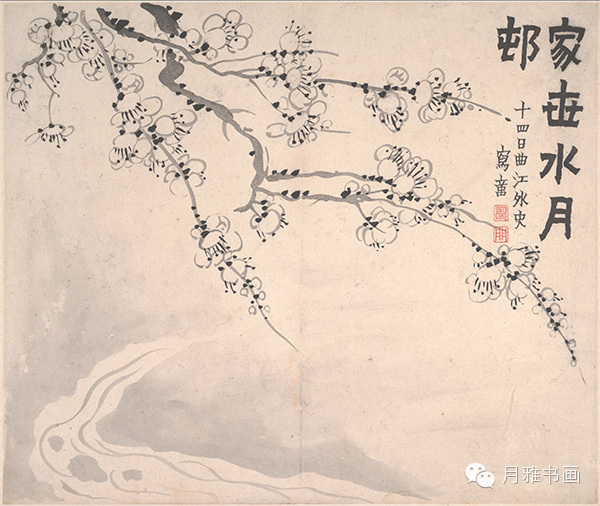 家世水月
邨
十四日曲江外史
寫
月雅书画